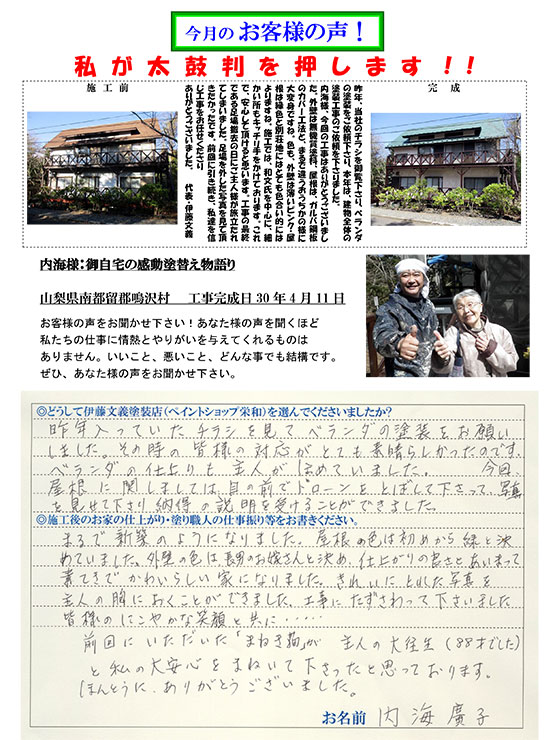 今月の お客様の声！
私が太鼓判を押します!!
施工前
完成
昨年、当社のチラシを御覧下さり、ベランダ
の塗装をご依頼下さり、本年は、建物全体の
塗装工事のご依頼を下さりました。
内海様、今回の工事はありがとうございまし
た。外壁は無機質塗料、屋根は、ガルバ鋼板
のカバー工法と、まるで違うおうちかの様に
大変身ですね。色も、外壁は薄いピンク・屋
根は緑色と別荘地にはとても色合い的には
よりますね。施工では、和文氏を中心に、細
かい所もキッチリ手をかけております。これ
で、安心して頂けると思います。工事の最終
である足場撤去の日にご主人様が旅立たれ
てしまいました。足場を外した写真を見て頂
きたかったです。前回に引き続き、私達を信
じ工事をお任せくださり
ありがとうございました。 代表・伊藤文義
内海様：御自宅の感動塗替え物語り
山梨県南都留郡鳴沢村 工事完成日30年4月11日
お客様の声をお聞かせ下さい！あなた様の声を聞くほど
私たちの仕事に情熱とやりがいを与えてくれるものは
ありません。いいこと、悪いこと、どんな事でも結構です。
ぜひ、あなた様の声をお聞かせ下さい。
◎どうして伊藤文義塗装店（ペイントショップ栄和）を選んでくださいましたか？
昨年入っていたチラシを見てベランダの塗装をお願い
しました。その時の皆様の対応がとても素晴らしかったのです。
ベランダの仕上りも主人がほめていました。 今回、
屋根に関しましては、目の前でドローンをとばして下さって、写真
を見せて下さり納得の説明を受けることができました。
◎施工後のお家の仕上がり・塗り職人の仕事振り等をお書きください。
まるで新築のようになりました。屋根の色は初めから緑と決
めていました。外壁の色は長男のお嫁さんと決め、仕上がりの良さとあいまって
素てきでかわいらしい家になりました。きれいにとれした写真を
主人の胸におくことができました。工事にたずさわって下さいました
皆様のにこやかな笑顔と共に・・・・・
前回にいただいた「まねき猫」が 主人の大往生（88才でした）
と私の大安心をまねいて下さったと思っております。
ほんとうに、ありがとうございました。
お名前 内海廣子